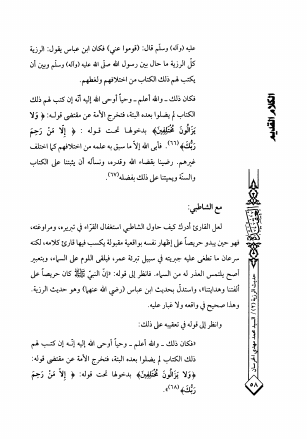 عليه (وآله) وسلّم قال: (قوموا عني) فكان ابن عباس يقول: الرزية
كلّ الرزية ما حال بين رسول الله صلّى الله عليه (وآله) وسلّم وبين أن
يكتب لهم ذلك الكتاب من اختلافهم ولغطهم.
فكان ذلك ـ والله أعلم ـ وحياً أوحى الله إليه أنّه إن كتب لهم ذلك
الكتاب لم يضلوا بعده البتة، فتخرج الأمة عن مقتضى قوله: ﴿ وَلا
يَزَالُونَ مُخْتَلِفِينَ﴾ بدخولها تحت قوله : ﴿ إِلاَّ مَنْ رَحِمَ
رَبُّكَ﴾(٦٦). فأبى الله إلاّ ما سبق به علمه من اختلافهم كما اختلف
غيرهم. رضينا بقضاء الله وقدره، ونسأله أن يثبتنا على الكتاب
والسنّة ويميتنا على ذلك بفضله(٦٧).
مع الشاطبي:
لعل القارئ أدرك كيف حاول الشاطبي استغفال القرّاء في تبريره، ومراوغته،
فهو حين يبدو حريصاً على إظهار نفسه بواقعية مقبولة يكسب فيها قارئ كلامه، لكنه
سرعان ما تطغى عليه جبريته في سبيل تبرئة عمر، فيلقى اللوم على السماء، وبتعبير
أصح يلتمس العذر له من السماء. فانظر إلى قوله: «إنّ النبيّ ﷺ كان حريصاً على
ألفتنا وهدايتنا»، واستدلّ بحديث ابن عباس (رضي الله عنهما) وهو حديث الرزية.
وهذا صحيح في واقعه ولا غبار عليه.
وانظر إلى قوله في تعقيبه على ذلك:
«فكان ذلك ـ والله أعلم ـ وحياً أوحى الله إليه إنّه إن كتب لهم
ذلك الكتاب لم يضلوا بعده البتة، فتخرج الأمة عن مقتضى قوله:
﴿ وَلا يَزَالُونَ مُخْتَلِفِينَ﴾ بدخولها تحت قوله: ﴿ إِلاَّ مَنْ رَحِمَ
رَبُّكَ﴾(٦٨)».
الكلام القديم
العقيدة
حديث الرزية (٢) / السيد محمد مهدي الخرسان
٥٨